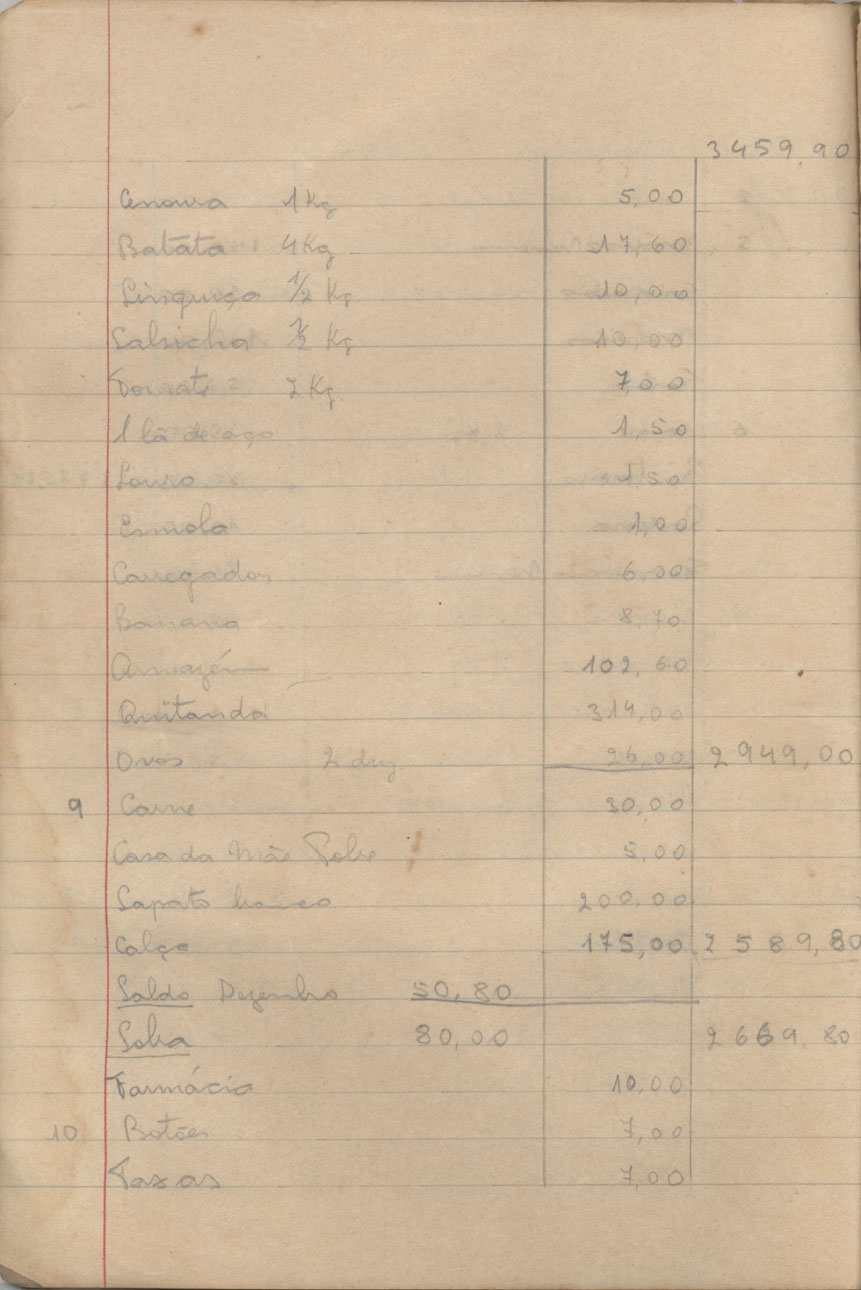 3459,90
Cenoura 1 Kg 5,00
Batata 4 Kg 17,60
Linguiça 1/2 Kg 10,00
Salsicha 1/2 Kg 10,00
Tomate 1 Kg 7,00
1 lã de aço 1,50
Louro 1,50
Esmola 1,00
Carregador 6,00
Banana 8,70
Armazém 102,60
Quitanda 314,00
Ovos 2 duz 26,00 2949,00
9 Carne 30,00
Casa da Mãe Pobre 5,00
Sapato branco 200,00
Calça 175,00 2589,80
Saldo Dezembro 50,80
Sobra 80,00 2669,80
Farmácia 10,00
10 Botões 7,00
Taxas 7,00